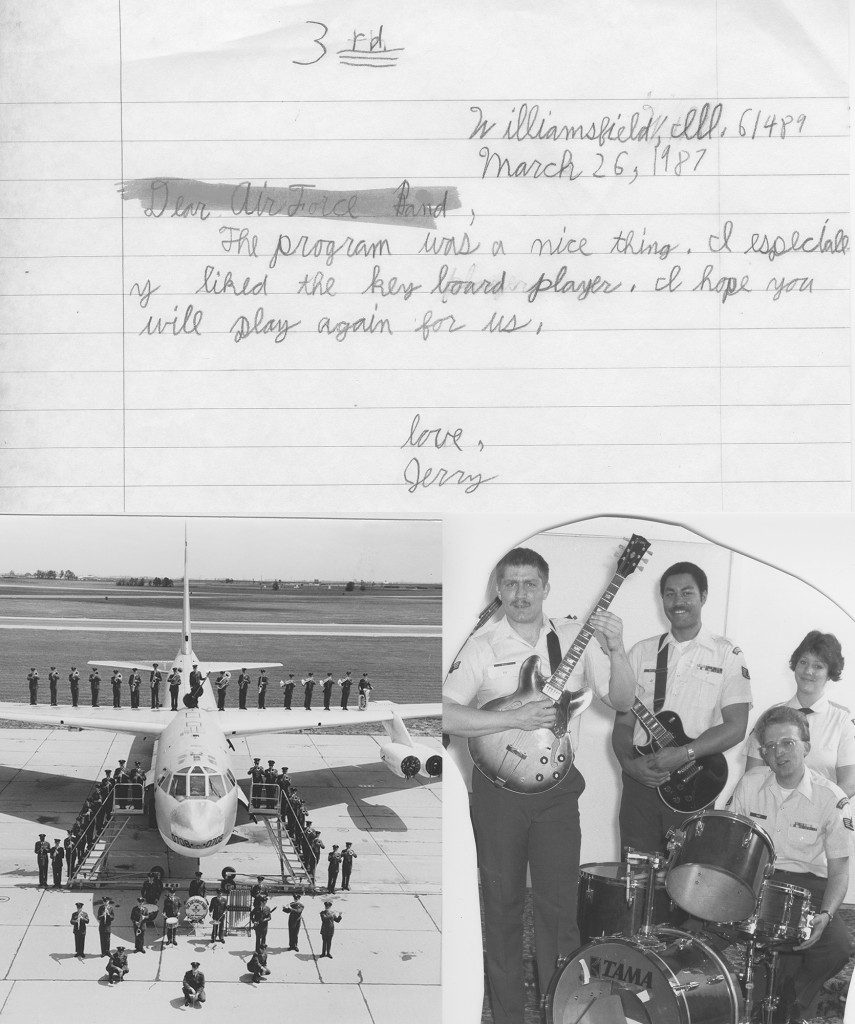 3rd
Williamsfield, Ill. 61489
March 26, 1987
Dear Air Force Band,
The program was a nice thing. I especiall
y liked the key board player. I hope you
will play again for us.
love,
Jerry
TAMA